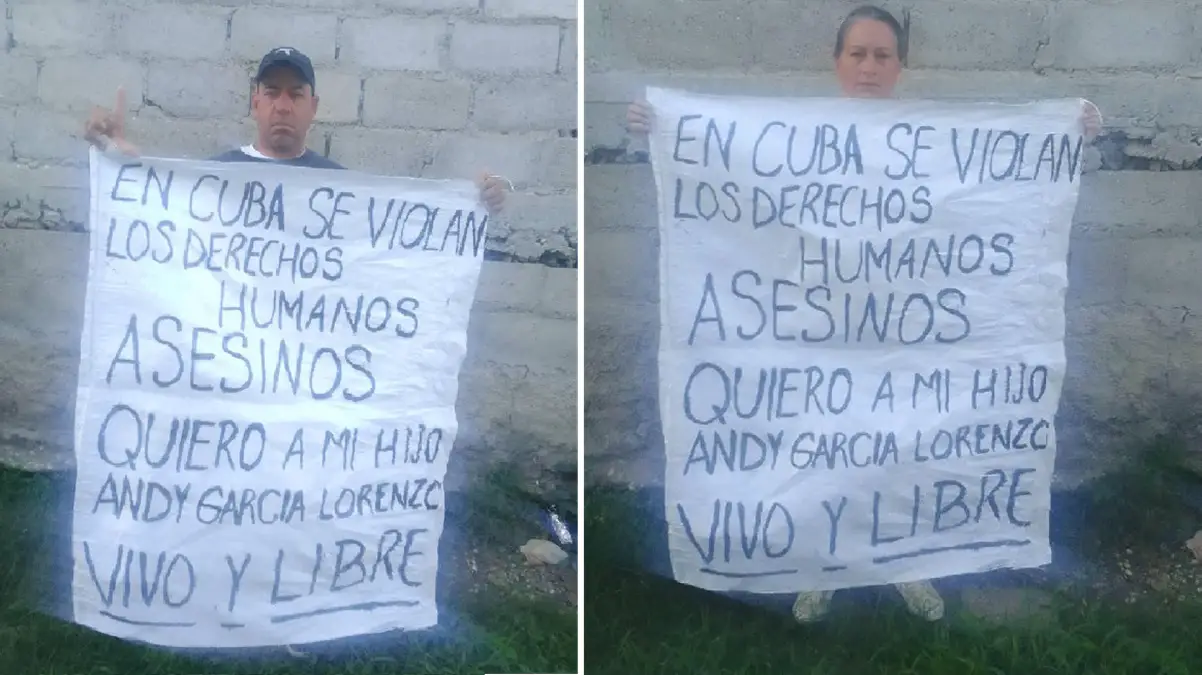 EN CUBA SE VIOLAN
LOS DERECHOS
HUMANOS
ASESINOS
QUIERO A MI HIJO
ANDY GARCIA LORENZO
VIVO Y LIBRE
EN CUBA SE VIOLAN
LOS DERECHOS
HUMANOS
ASESINOS
QUIERO A MI HIJO
ANDY GARCIA LORENZO
VIVO Y LIBRE